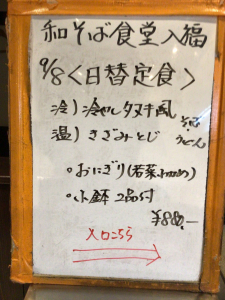 和そば食堂 入福
9/8＜日替定食＞
冷）冷やしタヌキ風
温）きざみとじ
そば
うどん
。おにぎり（若菜わかめ）
。小鉢 2品付
¥880.-
入口こちら